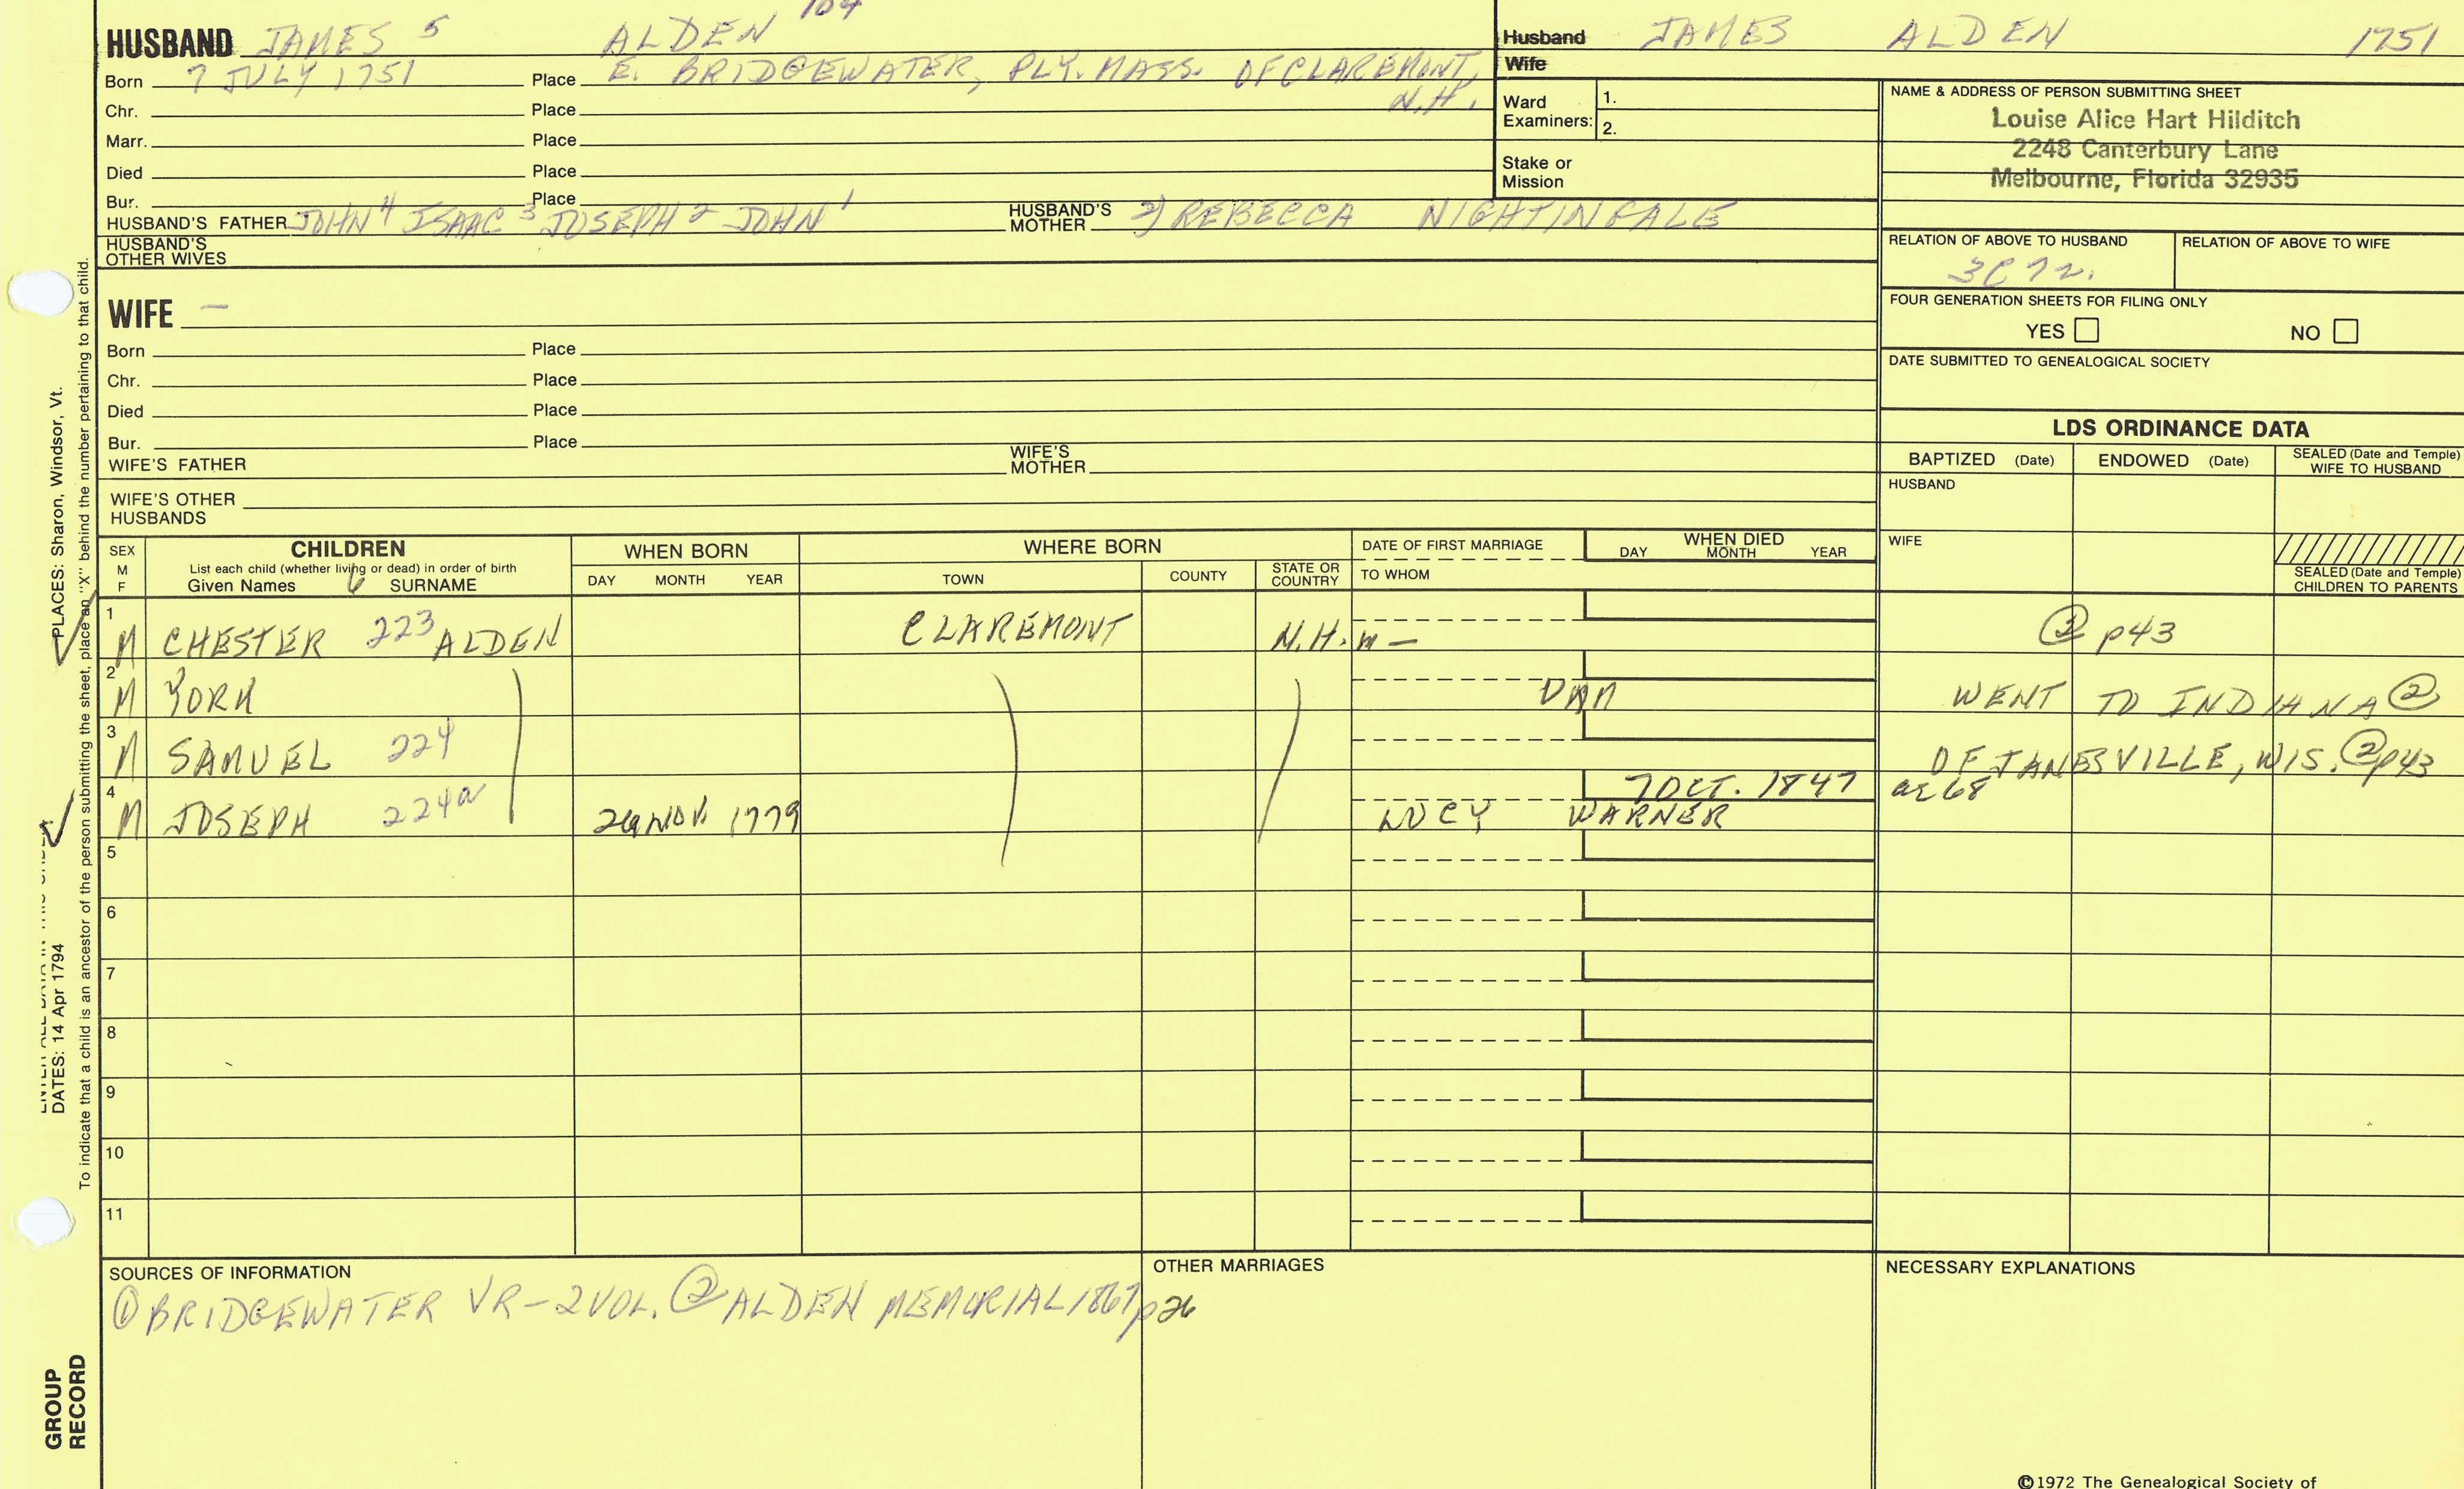 104
HUSBAND JAMES 5 ALDEN
Born 7 JULY 1751 Place E. BRIDGEWATER, PLY. MASS. OF CLAREMONT,
N.H.
Chr. Place
Marr. Place
Died Place
Bur. Place
HUSBAND'S FATHER JOHN 4 ISAAC 3 JOSEPH 2 JOHN 1 HUSBAND'S MOTHER 2) REBECCA NIGHTINGALE
HUSBAND'S
OTHER WIVES
Husband JAMES ALDEN 1751
Wife
Ward
Examiners: 1.
2.
Stake or
Mission
NAME & ADDRESS OF PERSON SUBMITTING SHEET
Louise Alice Hart Hilditch
2248 Canterbury Lane
Melbourne, Florida 32935
RELATION OF ABOVE TO HUSBAND RELATION OF ABOVE TO WIFE
3C7R.
FOUR GENERATION SHEETS FOR FILING ONLY
YES NO
DATE SUBMITTED TO GENEALOGICAL SOCIETY
WIFE –
Born Place
Chr. Place
Died Place
Bur. Place
WIFE'S FATHER WIFE'S MOTHER
WIFE'S OTHER
HUSBANDS
LDS ORDINANCE DATA
BAPTIZED (Date) ENDOWED (Date) SEALED (Date and Temple)
WIFE TO HUSBAND
HUSBAND
WIFE
SEALED (Date and Temple)
CHILDREN TO PARENTS
SEX
M
F
CHILDREN
List each child (whether living or dead) in order of birth
Given Names 6 SURNAME
WHEN BORN
DAY MONTH YEAR
WHERE BORN
TOWN COUNTY STATE OR
COUNTRY
DATE OF FIRST MARRIAGE
TO WHOM
WHEN DIED
DAY MONTH YEAR
1 M CHESTER 223 ALDEN CLAREMONT N.H. m – p43
2 M YORK WENT TO INDIANA ②
3 M SAMUEL 224 OF JANESVILLE, WIS. ② p43
4 M JOSEPH 224a 24 NOV. 1779 7 OCT. 1847 ae 68
LUCY WARNER
5
6
7
8
9
10
11
SOURCES OF INFORMATION
① BRIDGEWATER VR – 2 VOL. ② ALDEN MEMORIAL 1867 p26
OTHER MARRIAGES
NECESSARY EXPLANATIONS
©1972 The Genealogical Society of
PLACES: Sharon, Windsor, Vt.
DATES: 14 Apr 1794
To indicate that a child is an ancestor of the person submitting the sheet, place an "X" behind the number pertaining to that child.
GROUP
RECORD